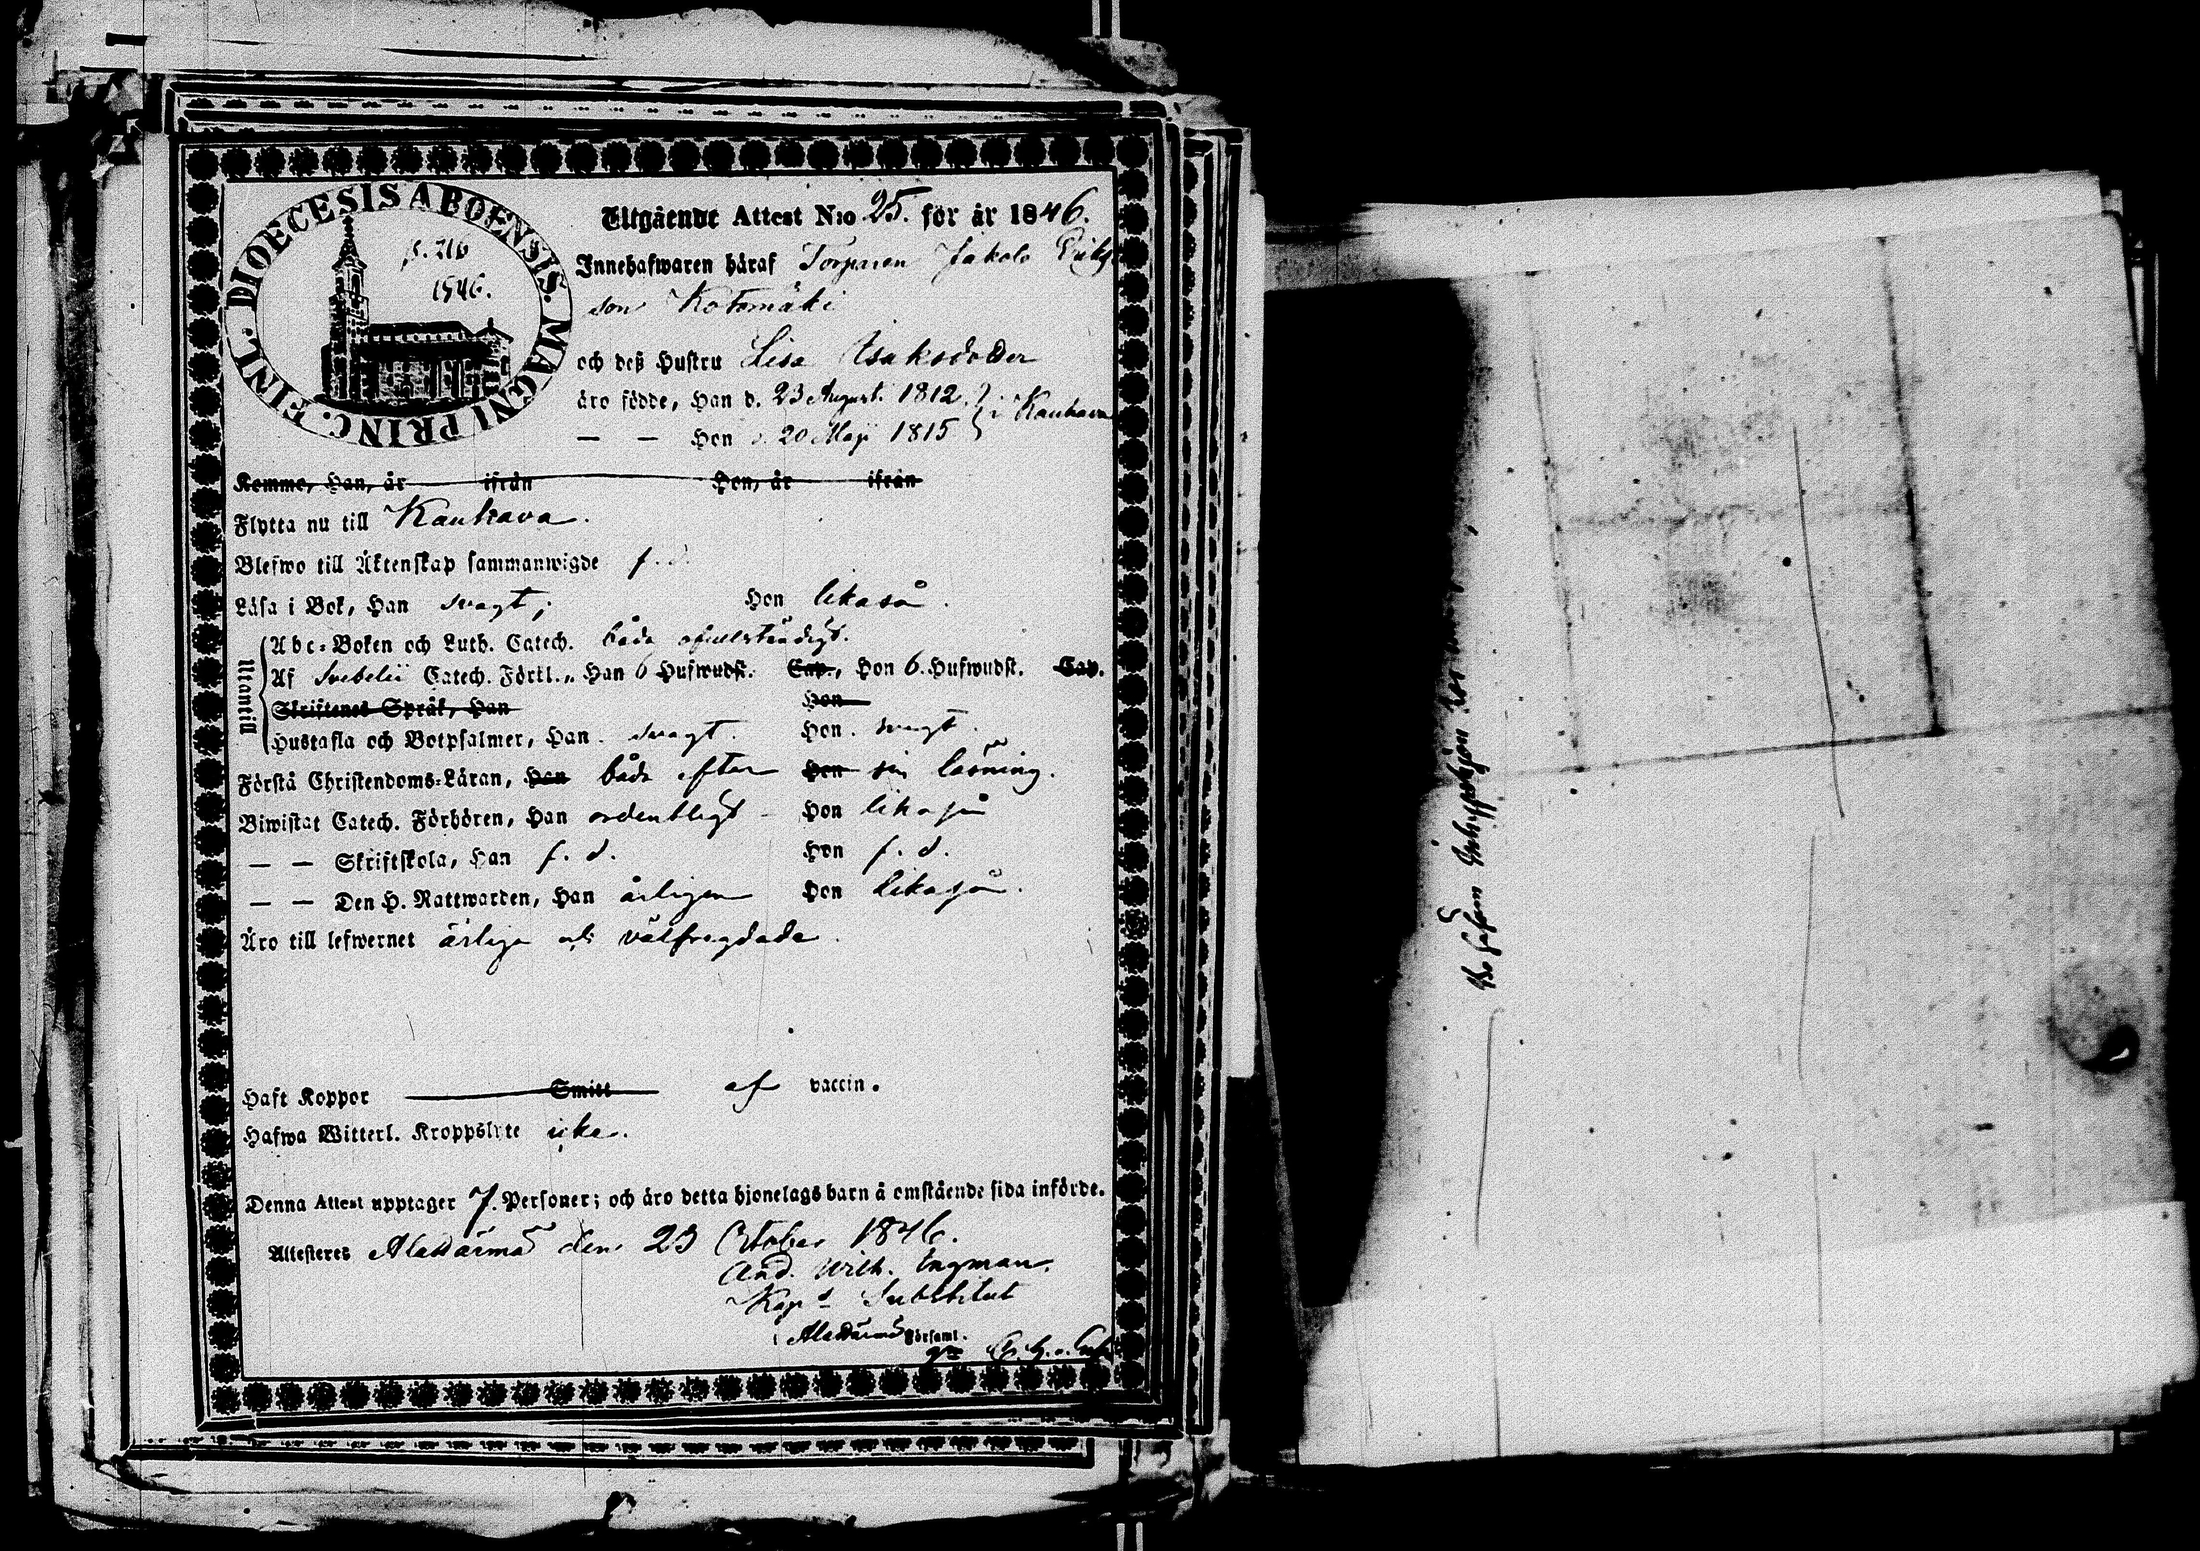 DIOECESIS ABOENSIS. MAGNI PRINC. FINL.
1846.
Utgående Attest N:o 25. för år 1846.
Innehafwaren häraf Torparen Jakob Eriks
son Kotomäki
och deß Hustru Lisa Isaksdotter
äro födde, Han d. 23 August. 1812. } i Kauhava
— — Hon d. 20 Maji 1815
Komme, Han, år ifrån Hon, år ifrån
Flytta nu till Kauhava.
Blefwo till Äktenskap sammanwigde f. d.
Läsa i Bok, Han svagt; Hon likaså.
Utantill
Abc-Boken och Luth. Catech. båda ofullständigt.
Af Svebelii Catech. Förkl., Han 6 Hufwudst. Cap., Hon 6. Hufwudst. Cap.
Skriftenes Språk, Han Hon
Hustafla och Botpsalmer, Han svagt. Hon svagt.
Förstå Christendoms-Läran, Han båda efter Hon sin läsning.
Biwistat Catech. Förhören, Han ordentligt – Hon likaså
— — Skriftskola, Han f. d. Hon f. d.
— — Den H. Nattwarden, Han årligen Hon likaså.
Äro till lefwernet ärliga och välfregdade.
Haft Koppor Smitt af vaccin.
Hafwa Witterl. Kroppslyte icke.
Denna Attest upptager 7. Personer; och äro detta hjonelags barn å omstående sida införde.
Attesteres Alahärmä den 23 October 1846.
And. Wilh. Ingman,
Kap:s Substitut
i Alahärmä Församl.